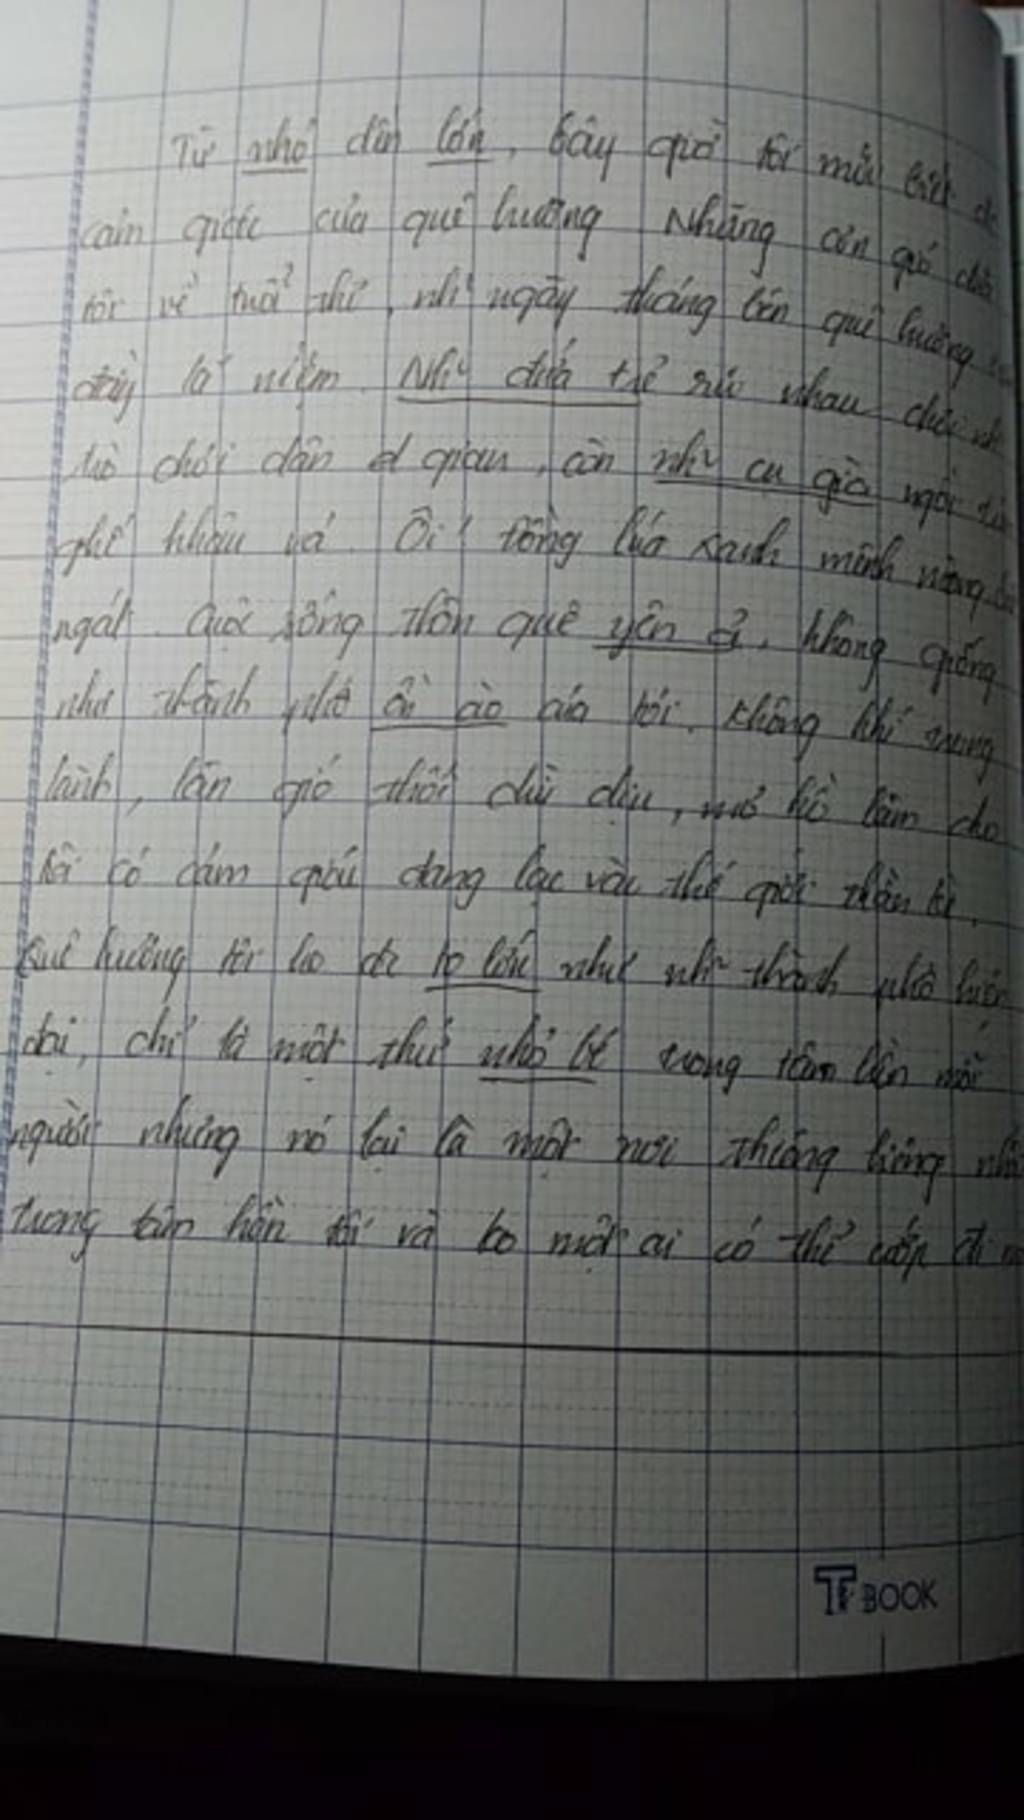 Từ nhỏ đến lớn, bây giờ tôi mới biết
cảm giác của quê hương Những cơn gió
tôi về tuổi thơ, nh~ ngày tháng bên quê hương
đầy kỉ niệm. Nh~ đứa trẻ rủ nhau chơi
trò chơi dân gian, còn nh~ cụ già ngồi
ghế khâu vá. Ôi! đồng lúa xanh mênh mông
ngát. Cuộc sống thôn quê yên ả, không giống
như thành phố ồn ào náo tới. Không khí trong
lành, làn gió thổi dịu dịu, mơ hồ làm cho
tôi có cảm giác đang lạc vào thế giới thần kì.
Quê hương tôi ko đc to lớn như nh~ thành phố hiện
đại, chỉ là một thứ nhỏ bé trong tâm hồn mỗi
người nhưng nó lại là một nơi thiêng liêng
trong tâm hồn tôi và ko một ai có thể cướp đi
TF BOOK